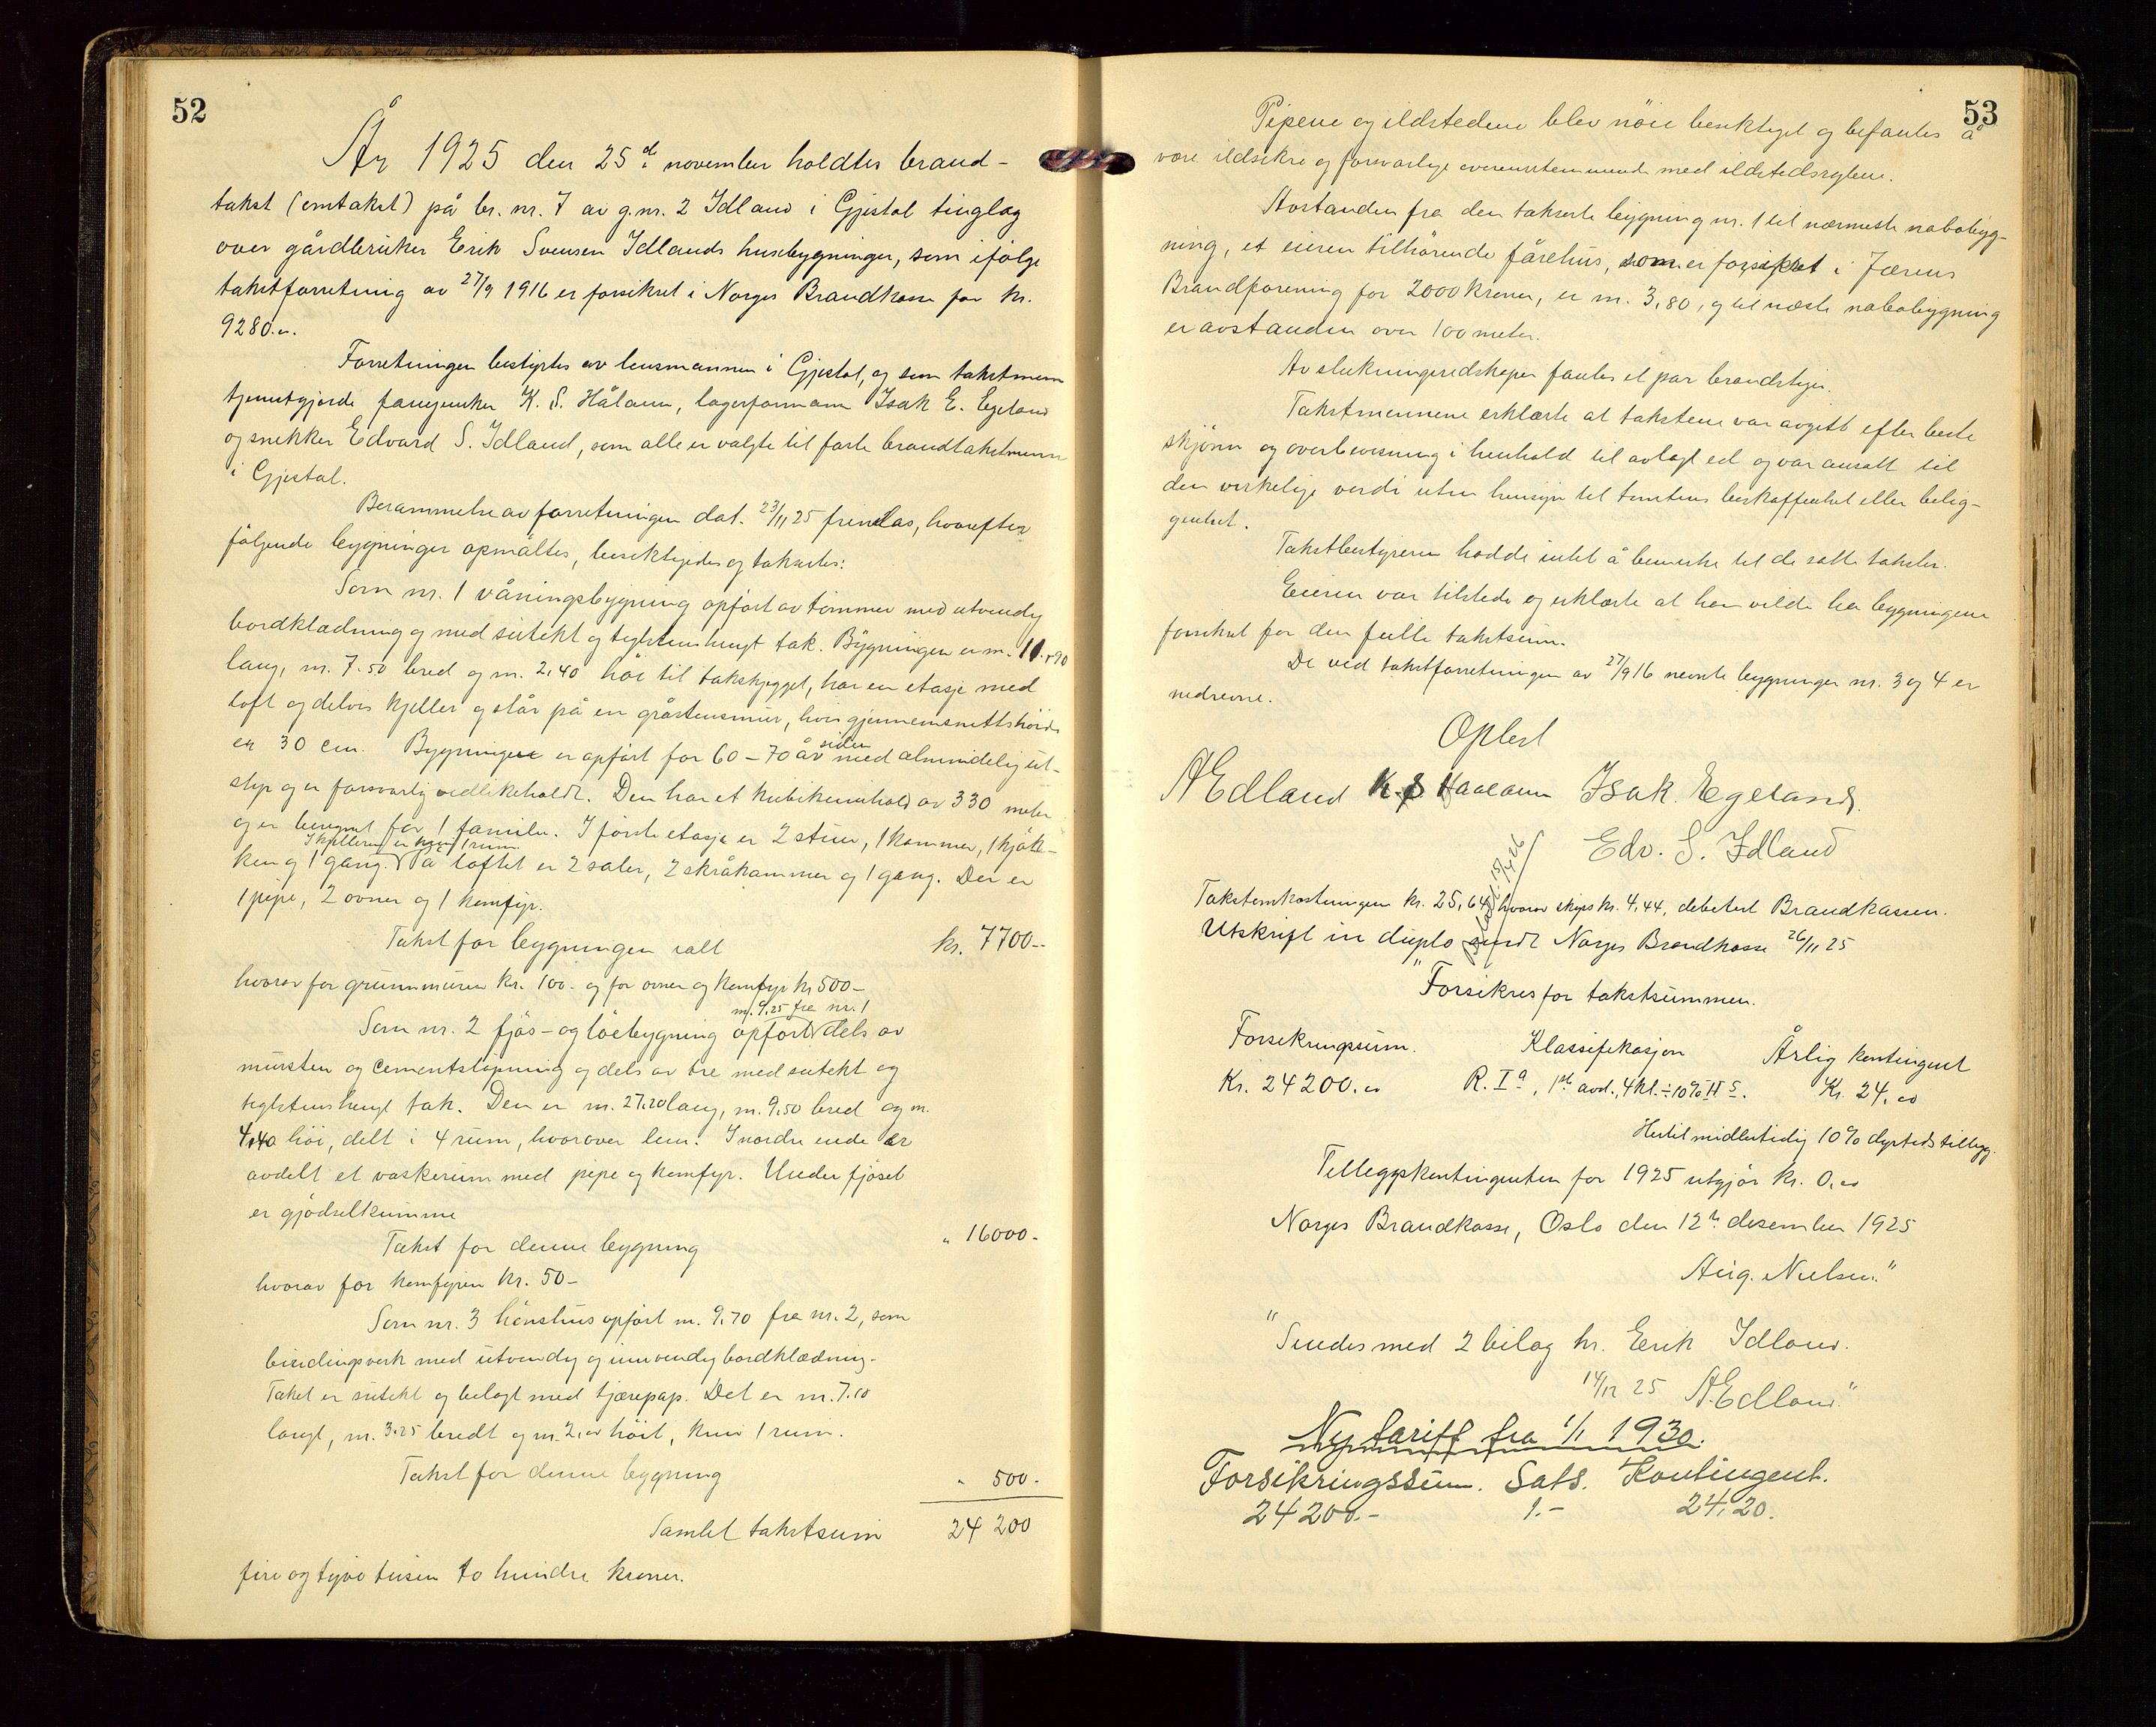 52
År 1925 den 25d. november holdtes brand-
takst (omtakst) på br. nr. 7 av g.nr. 2 Idland i Gjestal tinglag
over gårdbruker Erik Svensen Idlands husbygninger, som ifølge
takstforretning av 27/9 1916 er forsikret i Norges Brandkasse for kr.
9280.00.
Forretningen bestyrtes av lensmannen i Gjestal, og som takstmenn
tjenestgjorde K. S. Håland, lagerformann Isak E. Egeland
og snekker Edvard S. Idland, som alle er valgte til faste brandtakstmenn
i Gjestal.
Berammelse av forretningen dat. 23/11 25 fremlas, hvorefter
følgende bygninger opmåltes, besiktigedes og takseres:
Som nr. 1 våningsbygning opført av tømmer med utvendig
bordklædning og med sutekt og teglstenshengt tak. Bygningen er m. 11.90
lang, m. 7.50 bred og m. 2,40 høi til takskjegget, har en etasje med
loft og delvis kjeller og står på en gråstensmur, hvis gjennemsnittshøide
er 30 cm. Bygningen er opført for 60-70 år siden med almindelig ut-
styr og er forsvarlig vedlikeholdt. Den har et kubikinhold av 330 meter
og er beregnet for 1 familie. I første etasje er 2 stuer, 1 kammer, 1 kjøk-
I kjelleren er kun 1 rum.
ken og 1 gang. På loftet er 2 saler, 2 skråkammer og 1 gang. Der er
1 pipe, 2 ovner og 1 komfyr.
Takst for bygningen ialt kr. 7700--
hvorav for grunnmuren kr. 100- og for ovner og komfyr kr 500-
m. 9,25 fra nr. 1
Som nr. 2 fjøs- og løebygning opført dels av
mursten og cementstøpning og dels av tre med sutekt og
teglstenshengt tak. Den er m. 27.20 lang, m. 9,50 bred og m.
4,40 høi, delt i 4 rum, hvorover lem. I nordre ende er
avdelt et vaskerum med pipe og komfyr. Under fjøset
er gjødselkumme
Takst for denne bygning " 16000-
hvorav for komfyren kr. 50-
Som nr. 3 hønsehus opført m. 9.70 fra nr. 2, som
bindingsverk med utvendig og innvendig bordklædning.
Taket er sutekt og belagt med tjærepap. Det er m. 7.10
langt, m. 3.25 bredt og m. 2,00 høit, kun 1 rum.
Takst for denne bygning " 500-
Samlet takstsum 24 200
fire og tyve tusen to hundre kroner.
53
Pipene og ildstedene blev nøie besiktiget og befantes å
være ildsikre og forsvarlige overensstemmende med ildstedsreglene.
Avstanden fra den takserte bygning nr. 1 til nærmeste nabobyg-
ning, et eieren tilhørende fårehus, som er forsikret i Jærens
Brandforening for 2000 kroner, er m. 3,80, og til næste nabobygning
er avstanden over 100 meter.
Av slukningsredskaper fantes et par brandstiger.
Takstmennene erklærte at takstene var avgitt efter beste
skjønn og overbevisning i henhold til avlagt ed og var ansatt til
den virkelige verdi uten hensyn til tomtens beskaffenhet eller belig-
genhet.
Takstbestyreren hadde intet å bemerke til de satte takster.
Eieren var tilstede og erklærte at han vilde ha bygningene
forsikret for den fulle takstsum.
De ved takstforretningen av 27/9 16 nevnte bygninger nr. 3 og 4 er
nedrevne.
Oplest
AEdland K. S. Haaland Isak. Egeland.
Edv. S. Idland
Takstomkostningen kr. 25,64, hvorav skyss kr. 4,44, debetert Brandkassen.
15/4 26
Utskrift in duplo sendt Norges Brandkasse 26/11 25
"Forsikres for takstsummen.
Forsikringssum. Klassifikasjon Årlig kontingent
Kr. 24200.00 R. Ia, 1ste avd., 4 kl. ÷ 10% H S. Kr. 24,00
Hertil midlertidig 10% dyrtidstillegg.
Tilleggskontingenten for 1925 utgjør kr. 0,00
Norges Brandkasse, Oslo den 12te desember 1925
Aug. Nielsen."
"Sendes med 2 bilag hr. Erik Idland.
14/12 25 A.Edland"
Ny tariff fra 1/1 1930.
Forsikringssum. Sats. Kontingent.
24200.- 1.- 24,20.